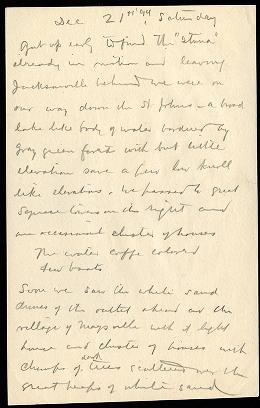 Dec 21st '99, Saturday
Got up early to find the "Etna"
already in motion and leaving
Jacksonville behind we were on
our way down the St Johns - a broad
lake like body of water bordered by
gray green forest with but little
elevation save a few low knoll
like elevations. We passed to great
square on the right and
an occasional cluster of houses
The water coffe colored
few boats
Soon we saw the white sand
dunes of the outlet ahead and the
village of Mayville with it light
house and cluster of houses with
clumps of dark trees scattered over the
great heaps of white sand